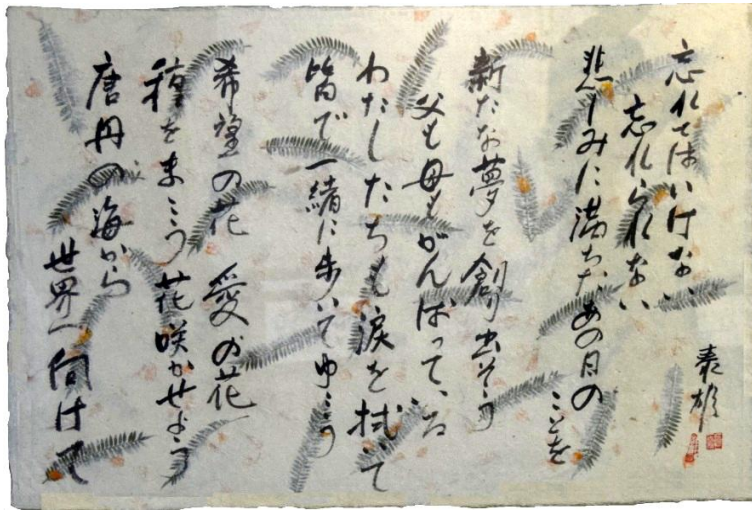 忘れてはいけない
忘れられない
悲しみに満ちたあの日の
ことを
新たな夢を創り出そう
父も母もがんばっている
わたしたちも涙を拭いて
皆で一緒に歩いてゆこう
希望の花 愛の花
種をまこう 花咲かせよう
唐丹の海から
世界へ向けて
泰雄